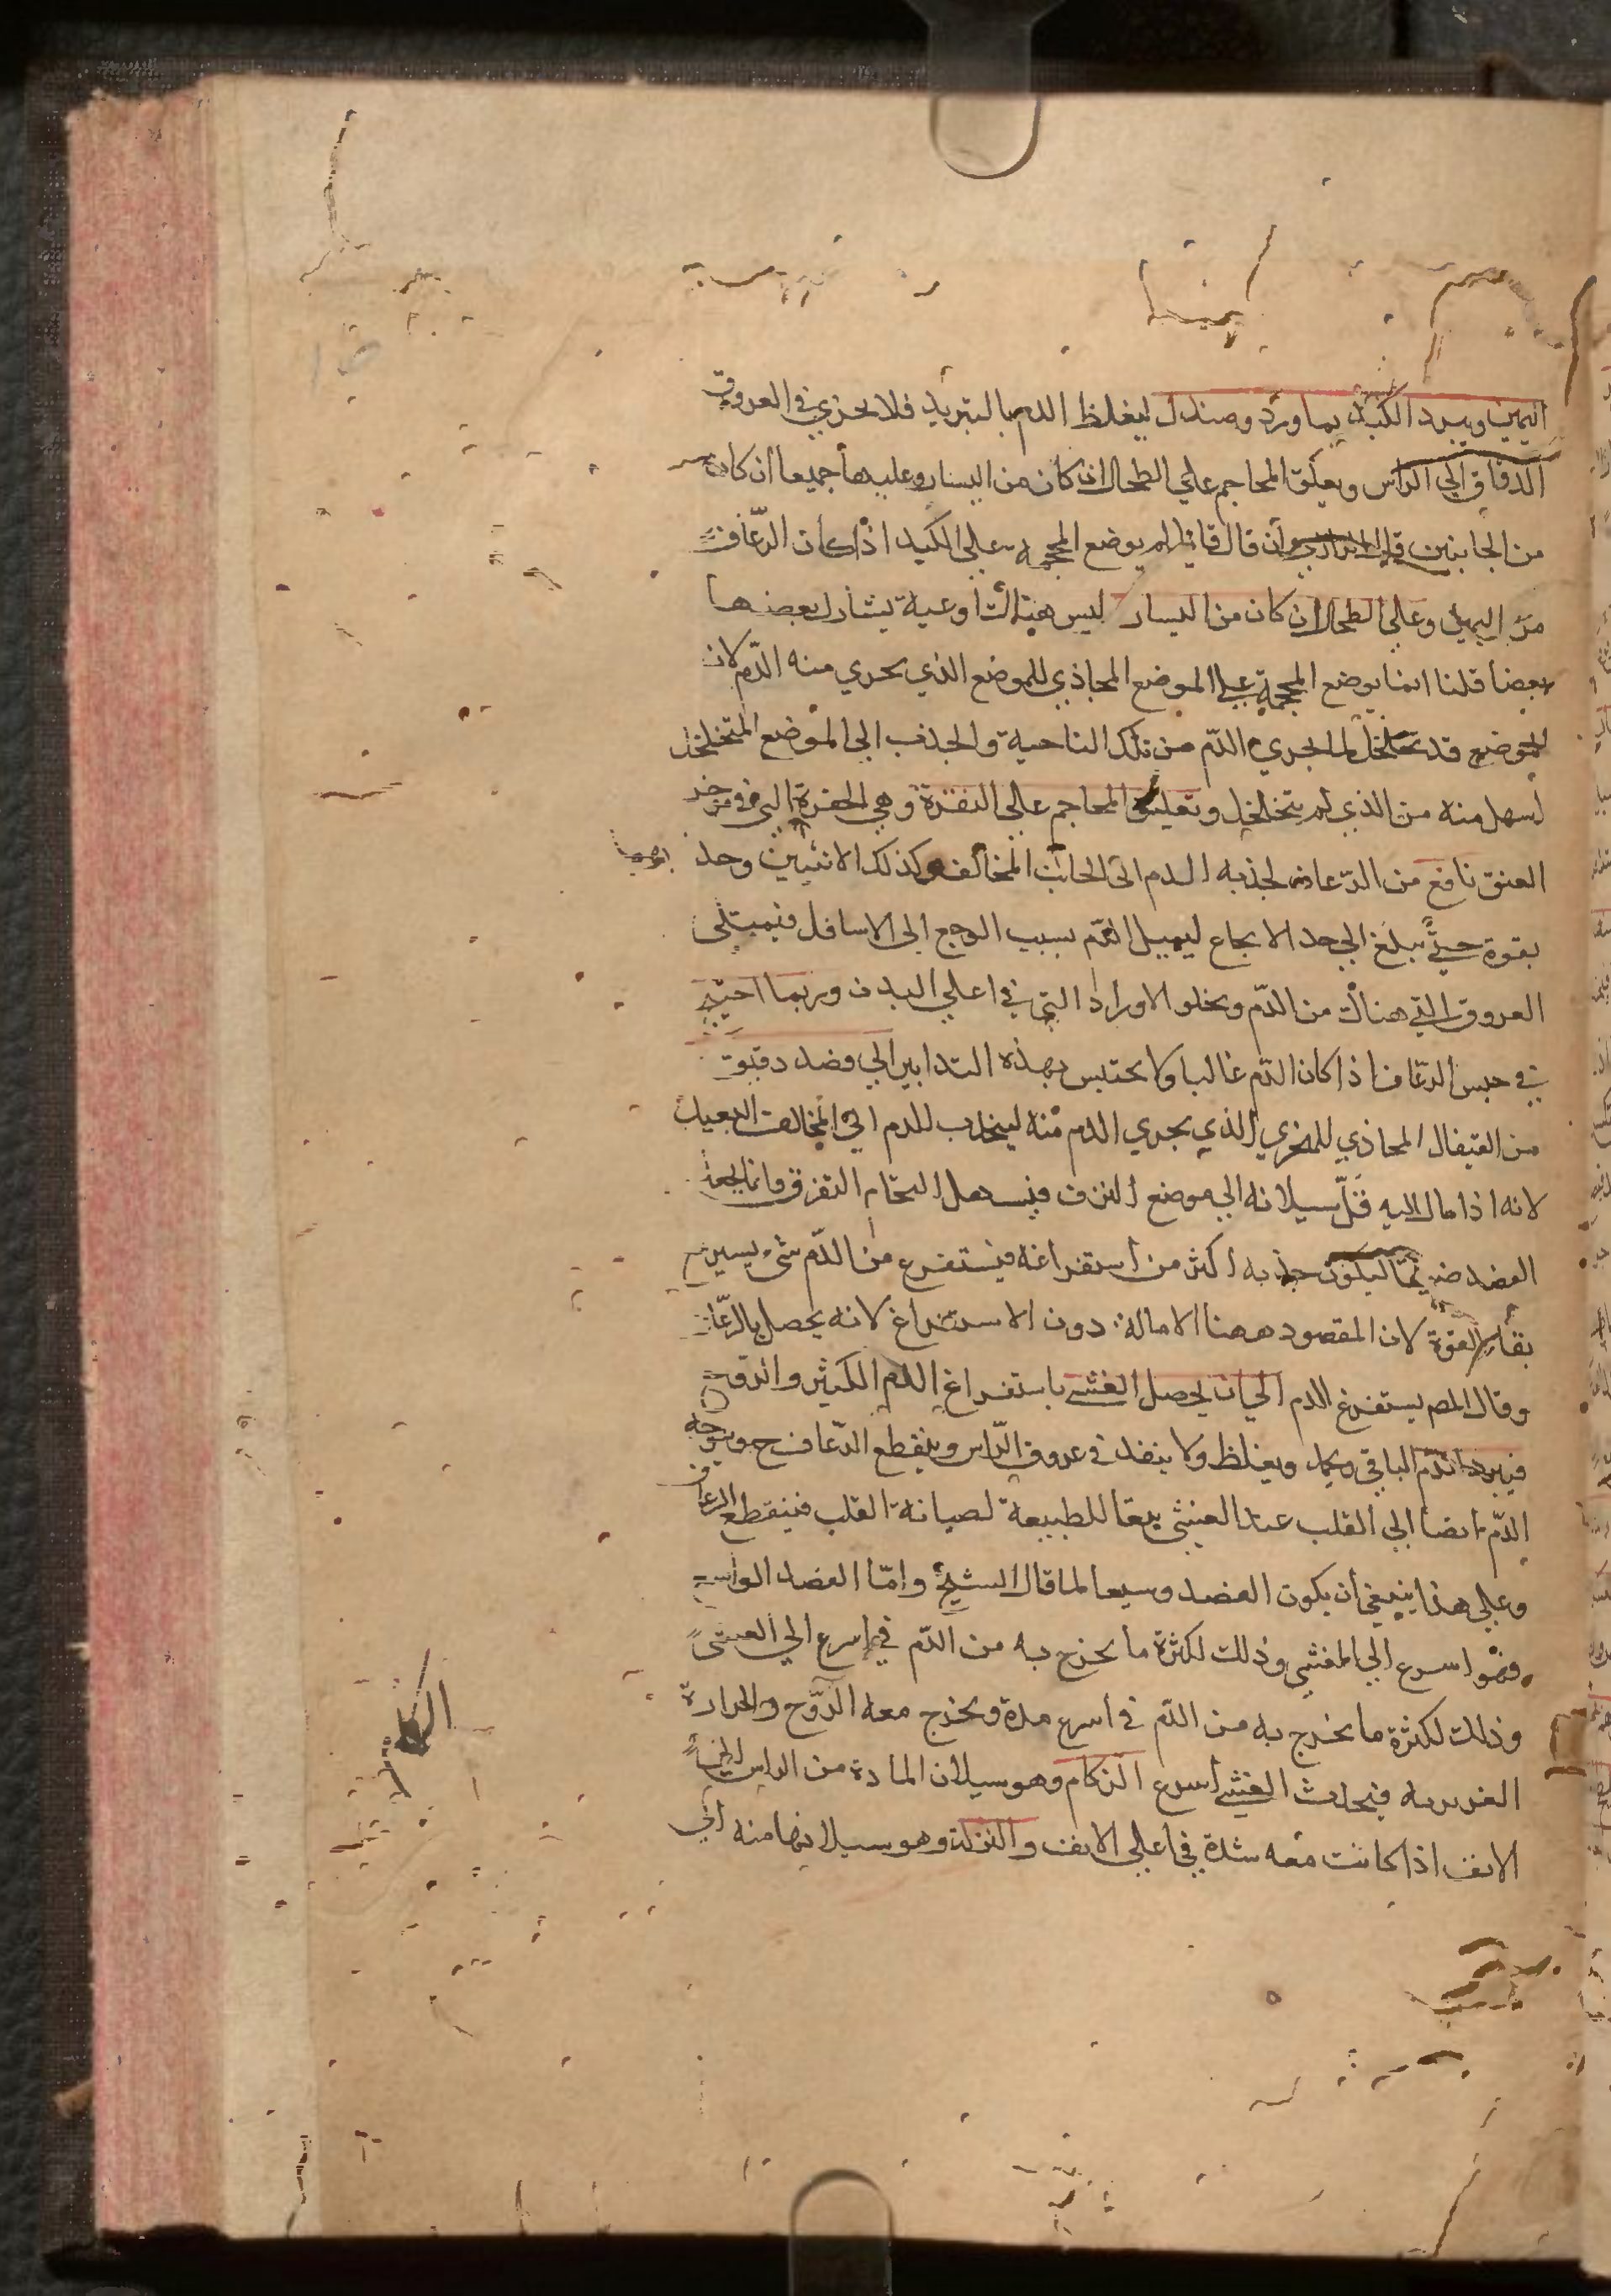 اليمين ويبرد الكبد بماورد وصندل ليغلظ الدم بالتبريد فلا يجري في العروق
الدقاق الي الراس ويعلق المحاجم علي الطحال ان كان من اليسار وعليهما جميعا ان كان
من الجانبين وان قال قائل لم يوضع المحجمة علي الكبد اذا كان الرعاف
من اليمين وعلي الطحال ان كان من اليسار ليس هناك اوعية يشارك بعضها
بعضا قلنا انما يوضع المحجمة علي الموضع المحاذي للموضع الذي يجري منه الدم لان
الموضع قد تخلخل لما يجري الدم من تلك الناحية والجذب الي الموضع المتخلخل
اسهل منه من الذي لم يتخلخل وتعليق المحاجم علي النقرة وهي الحفرة التي في موخر
العنق نافع من الرعاف لجذبه الدم الي الجانب المخالف وكذلك الانثيين وحد
بقوة حتي يبلغ الي حد الايجاع ليميل الدم بسبب الوجع الي الاسافل فيمتلي
العروق التي هناك من الدم ويخلو الاوراد التي في اعلي البدن وربما احتيج
في حبس الرعاف اذا كان الدم غالبا ولا يحتبس بهذه التدابير الي فصد دقيق
من القيفال المحاذي للمنخري الذي يجري الدم منه ليجذب للدم الي المخالف البعيد
لانه اذا مال اليه قل سيلانه الي موضع النزف فيسهل التحام التفرق وانما يجعل
الفصد ضيقا ليكون جذبه اكثر من استفراغه فيستفرغ من الدم شئ يسير مع
بقاء القوة لان المقصود ههنا الامالة دون الاستفراغ لانه يحصل بالرعاف
وقال المص يستفرغ الدم الي ان يحصل الغشي باستفراغ الدم الكثير والروح
فيبرد الدم الباقي ويجمد ويغلظ ولا ينفد في عروق الراس وينقطع الرعاف ح ويتوجه
الدم ايضا الي القلب عند الغشي تبعا للطبيعة لصيانة القلب فينقطع الرعاف
وعلي هذا ينبغي ان يكون الفصد وسيعا لما قال الشيخ واما الفصد الواسع
فهو اسرع الي الغشي وذلك لكثرة ما يخرج به من الدم في اسرع الي الغشي
وذلك لكثرة ما يخرج به من الدم في اسرع مدة ويخرج معه الروح والحرارة
الغريزية فيحدث الغشي اسرع الزكام وهو سيلان المادة من الراس الي
الانف اذا كانت معه شدة في اعلي الانف والنزلة وهو سيلانها منه الي